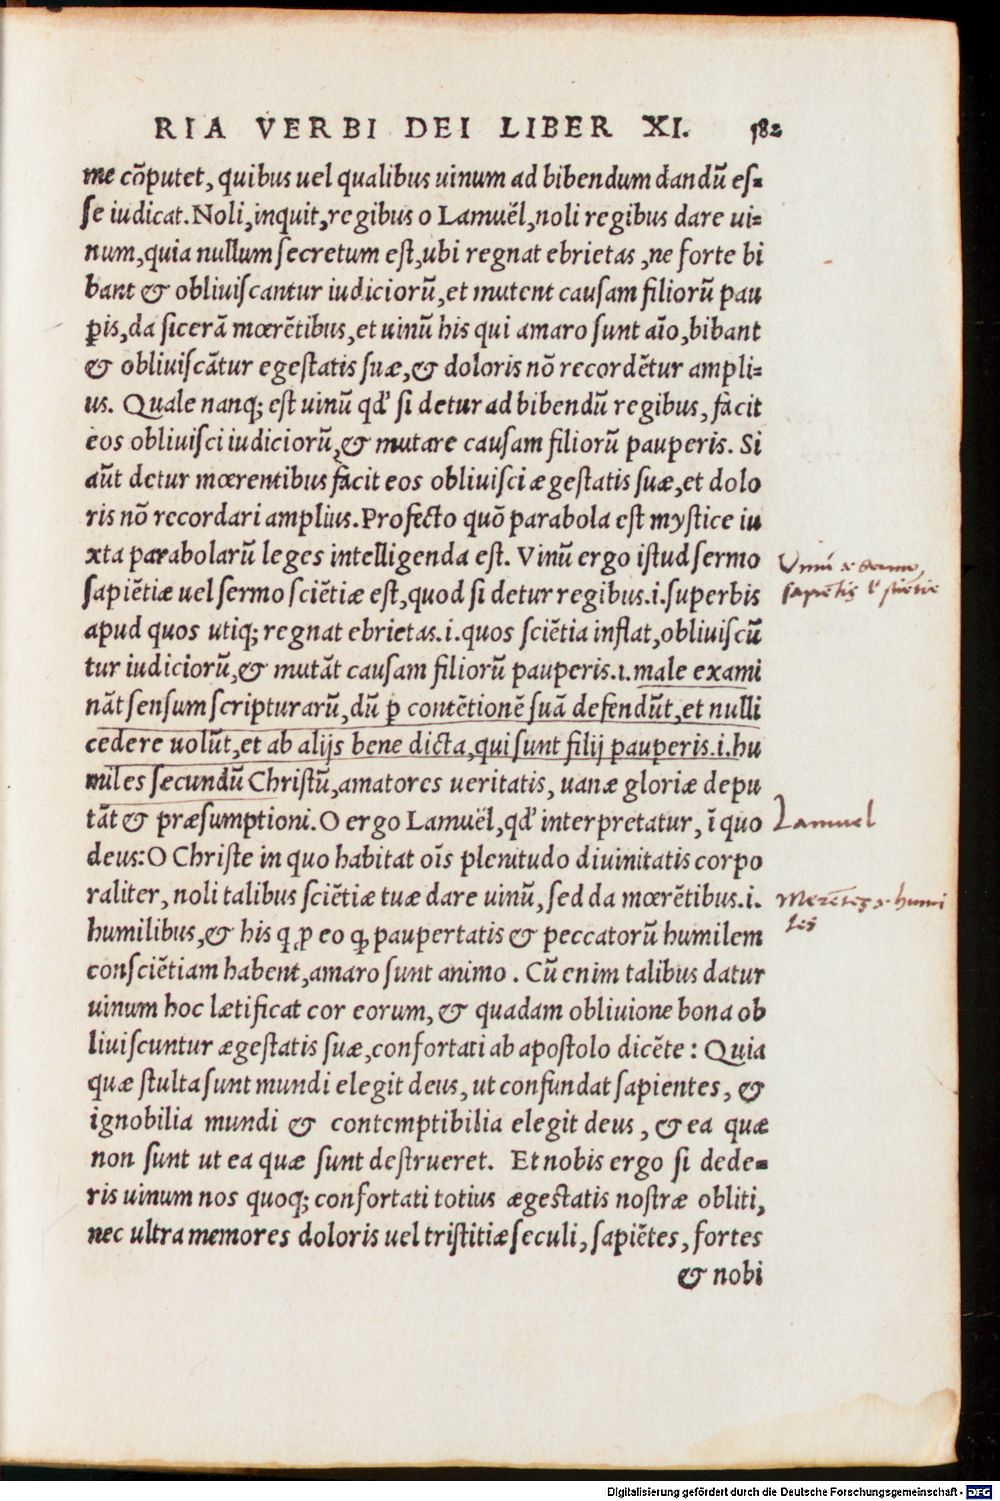 RIA VERBI DEI LIBER XI. 182
me cõputet, quibus uel qualibus uinum ad bibendum dandũ es-
se iudicat. Noli, inquit, regibus o Lamuël, noli regibus dare ui-
num, quia nullum secretum est, ubi regnat ebrietas, ne forte bi
bant & obliuiscantur iudiciorũ, et mutent causam filiorũ pau
ꝑis, da sicerã mœrẽtibus, et uinũ his qui amaro sunt aĩo, bibant
& obliuiscãtur egestatis suæ, & doloris nõ recordẽtur ampli-
us. Quale nanq; est uinũ qd' si detur ad bibendũ regibus, facit
eos obliuisci iudiciorũ, & mutare causam filiorũ pauperis. Si
aũt detur mœrentibus facit eos obliuisci ægestatis suæ, et dolo
ris nõ recordari amplius. Profecto quõ parabola est mystice iu
xta parabolarũ leges intelligenda est. Vinũ ergo istud sermo
sapiẽtiæ uel sermo sciẽtiæ est, quod si detur regibus .i. superbis
apud quos utiq; regnat ebrietas .i. quos sciẽtia inflat, obliuiscũ
tur iudiciorũ, & mutãt causam filiorũ pauperis .i. male exami
nãt sensum scripturarũ, dũ ꝑ contẽtionẽ suã defendũt, et nulli
cedere uolũt, et ab alijs bene dicta, qui sunt filij pauperis .i. hu
miles secundũ Christũ, amatores ueritatis, uanæ gloriæ depu
tãt & præsumptioni. O ergo Lamuël, qd' interpretatur, ĩ quo
deus: O Christe in quo habitat oĩs plenitudo diuinitatis corpo
raliter, noli talibus sciẽtiæ tuæ dare uinũ, sed da mœrẽtibus .i.
humilibus, & his q ꝓ eo ꝙ paupertatis & peccatorũ humilem
consciẽtiam habent, amaro sunt animo. Cũ enim talibus datur
uinum hoc lætificat cor eorum, & quadam obliuione bona ob
liuiscuntur ægestatis suæ, confortati ab apostolo dicẽte: Quia
quæ stulta sunt mundi elegit deus, ut confundat sapientes, &
ignobilia mundi & contemptibilia elegit deus, & ea quæ
non sunt ut ea quæ sunt destrueret. Et nobis ergo si dede-
ris uinum nos quoq; confortati totius ægestatis nostræ obliti,
nec ultra memores doloris uel tristitiæ seculi, sapiẽtes, fortes
& nobi
Lamuel
Digitalisierung gefördert durch die Deutsche Forschungsgemeinschaft - DFG